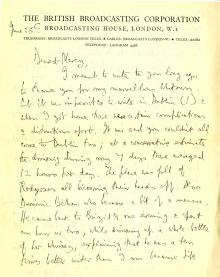 THE BRITISH BROADCASTING CORPORATION
BROADCASTING HOUSE, LONDON, W.1
TELEGRAMS: BROADCASTS LONDON TELEX CABLES: BROADCASTS LONDON-W1 TELEX:
TELEPHONE: LANGHAM 4468
June 25th
I meant to write to you long ago
to thank you for my marvellous
It was impossible to write in Dublin
when I got home there were certain complications
& distractions apart. It was sad you couldn't all
come to Dublin too, at a conservative estimate
the drinking during my 7 days there averaged
12 hours per day. The place was full of
all their heads off. Also
Dominic Behan who became a bit of a menace.
He came back to Brigid's one evening & spent
an hour or two, while drinking up a whole bottle
of her whiskey, explaining that he was a ten
times better writer than I was because life